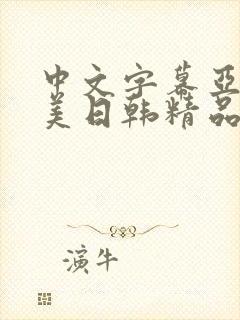 中文字幕亚
美日韩精品
演牛